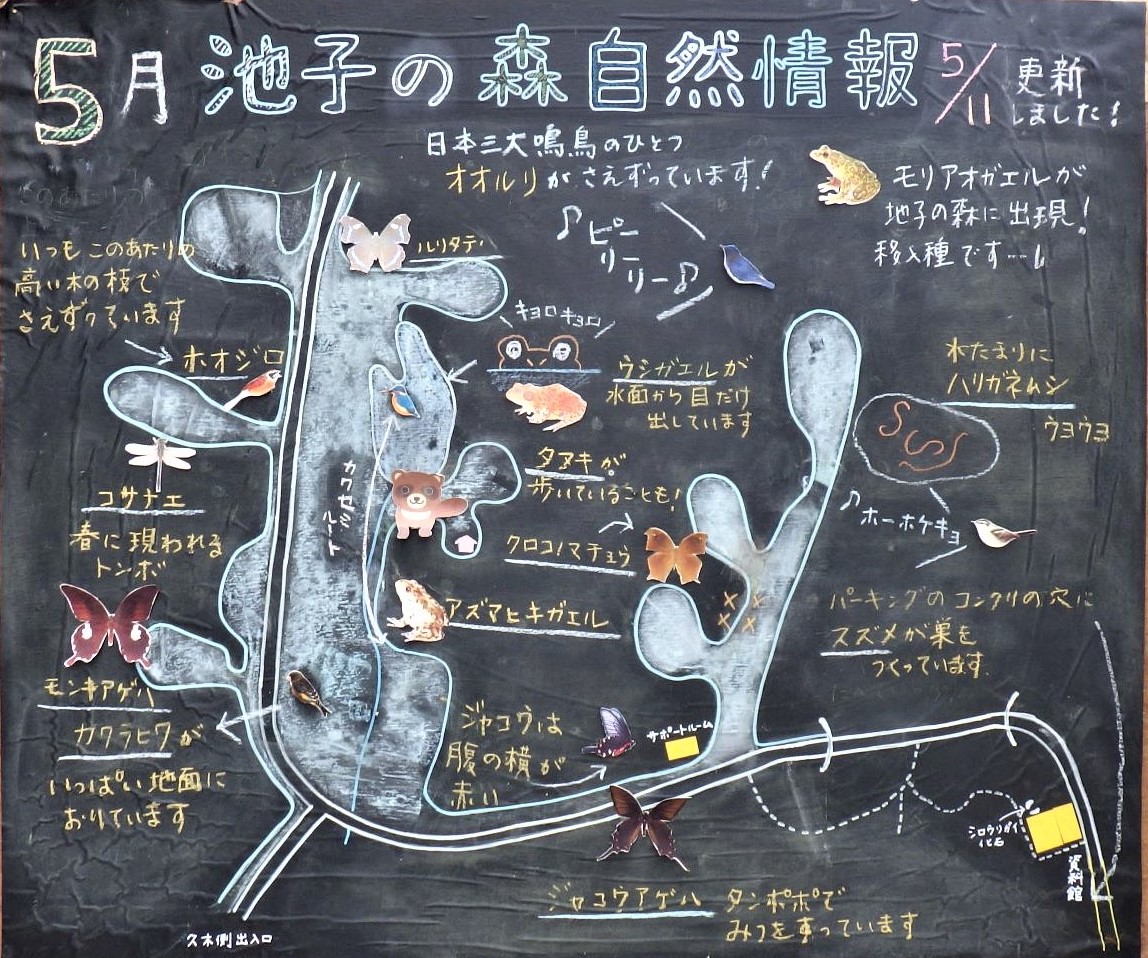 5月 池子の森自然情報 5/11 更新
しました!
日本三大鳴鳥のひとつ
オオルリがさえずっています!
♪ピー
リー
リー♪
モリアオガエルが
池子の森に出現!
移入種です…!
いつもこのあたりの
高い木の枝で
さえずっています
ホオジロ
ルリタテハ
キョロキョロ
ウシガエルが
水面から目だけ
出しています
水たまりに
ハリガネムシ
ウヨウヨ
コサナエ
春に現われる
トンボ
カワセミ
ルート
タヌキが
歩いていることも!
クロコノマチョウ
♪ホーホケキョ
アズマヒキガエル
パーキングのコンクリの穴に
スズメが巣を
つくっています。
モンキアゲハ
カワラヒワが
いっぱい地面に
おりています
ジャコウは
腹の横が
赤い
サポートルーム
シロウリガイ
化石
資料館
ジャコウアゲハ タンポポで
みつを吸っています
久木側出入口